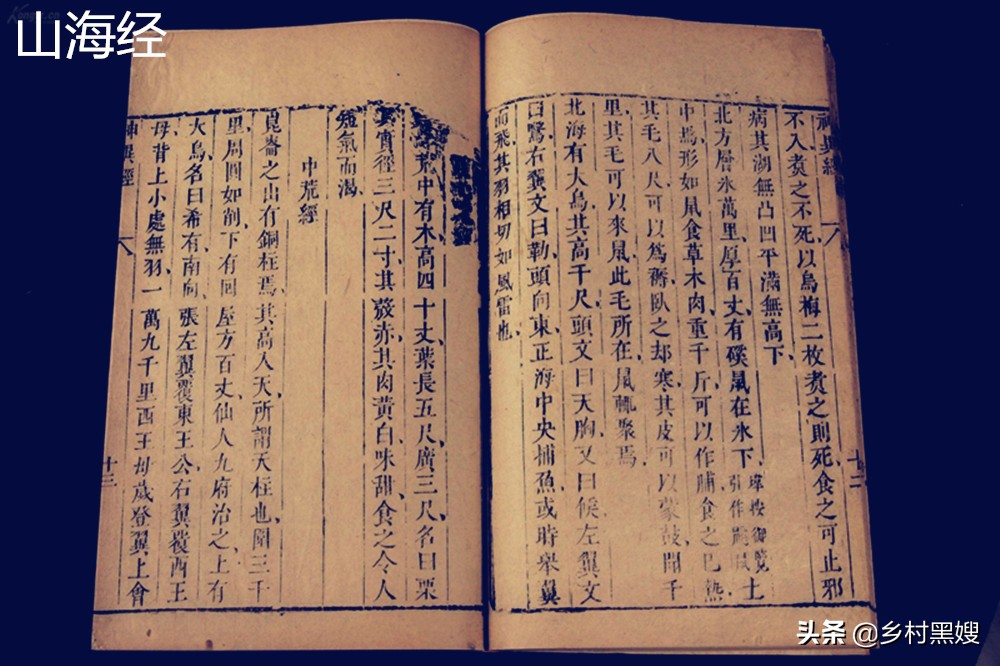 山海经
神異經
不入煑之不死以烏梅二枚煑之則死食之可止邪
病其湖無凸凹平滿無高下
北方層氷萬里厚百丈有磎鼠在氷下 土
中焉形如鼠食草木肉重千斤可以作脯食之已熱
其毛八尺可以爲褥臥之却寒其皮可以蒙鼓聞千
里其毛可以來鼠此毛所在鼠輒聚焉
北海有大鳥其高千尺頭文曰天胸又曰候左翼文
曰鷖右翼文曰勒頭向東正海中央捕魚或時舉翼
而飛其羽相切如風雷也
荒中有木高四十丈葉長五尺廣三尺名曰栗
其實徑三尺二寸其殼赤其肉黃白味甜食之令人
短氣而渴
中荒經
崑崙之山有銅柱焉其高入天所謂天柱也圍三千
里周圓如削下有回屋方百丈仙人九府治之上有
大鳥名曰希有南向張左翼覆東王公右翼覆西王
母背上小處無羽一萬九千里西王母歲登翼上會
神異經 十三
头条 @乡村黑嫂